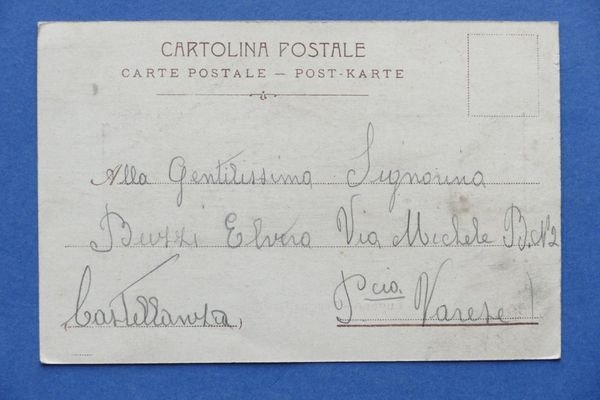 CARTOLINA POSTALE
CARTE POSTALE — POST-KARTE
Alla Gentilissima Signorina
Buzzi Elvira Via Michele B. N 2
(Castellanza) Pcia. Varese)